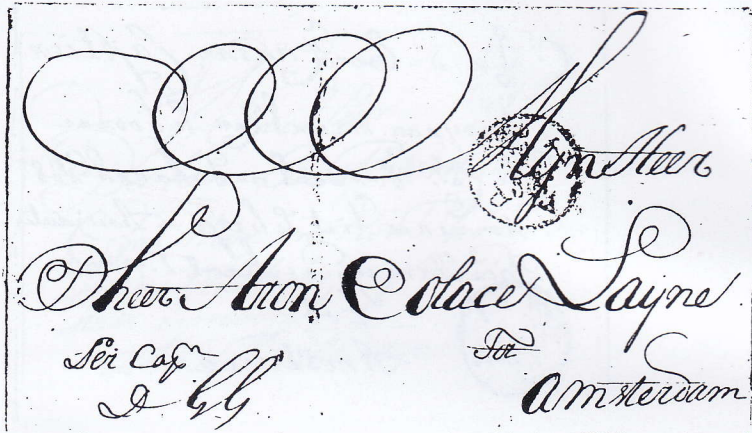 Mijn Heer
D'heer Aron Colace Layne
Per Capn Tot
D GG Amsterdam